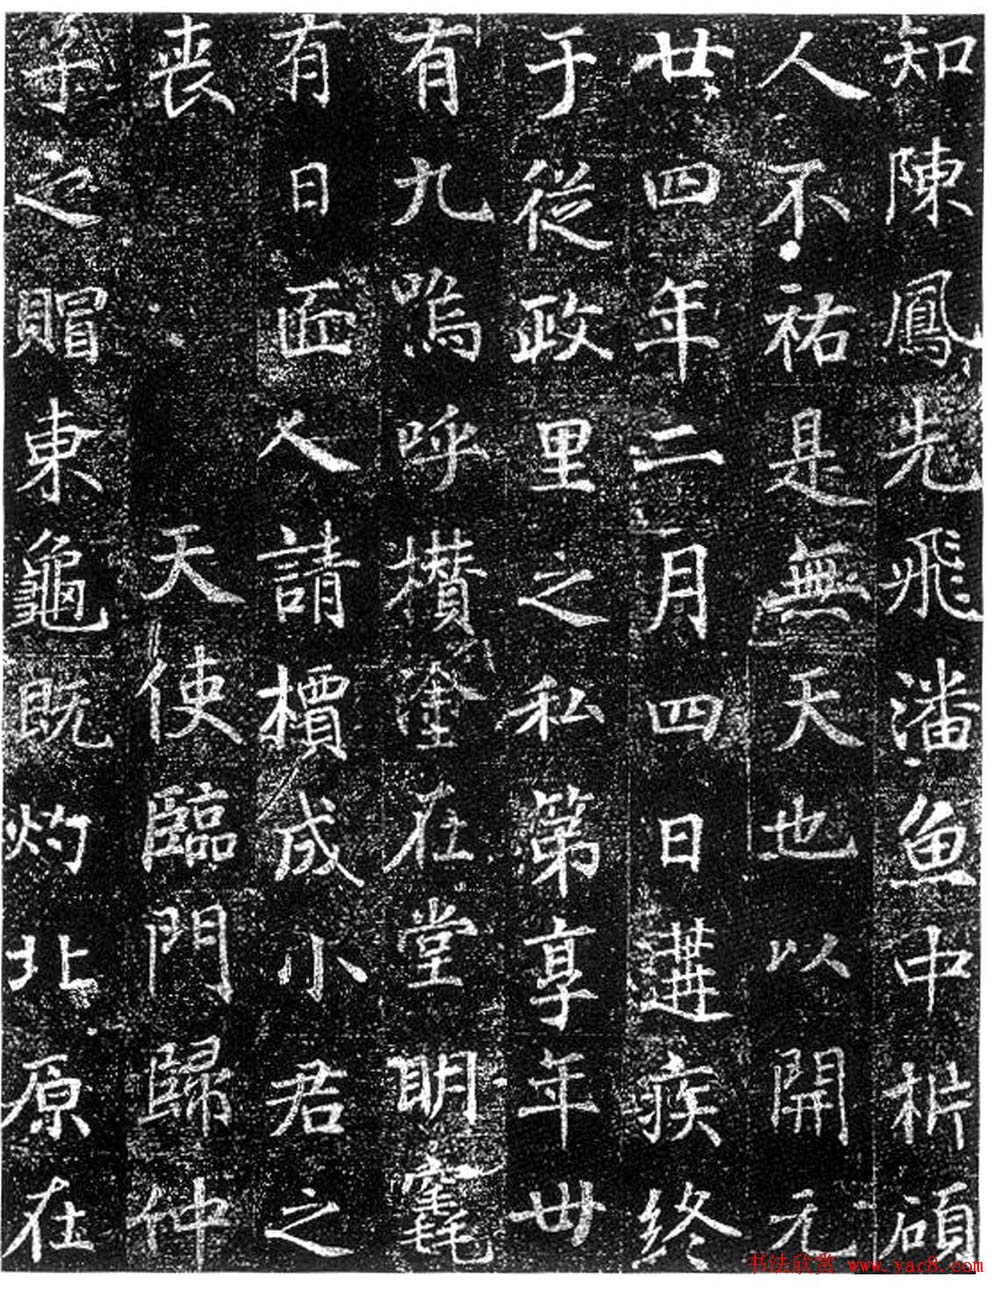 知陳鳳先飛潘魚中析碩
人不祐是無天也以開元
廿四年二月四日遘疾終
于從政里之私第享年卌
有九嗚呼欑塗在堂眀窀
有日匠人請檟成小君之
喪　天使臨門歸仲
子之賵東龜既灼北原在
书法欣赏 www.yac8.com